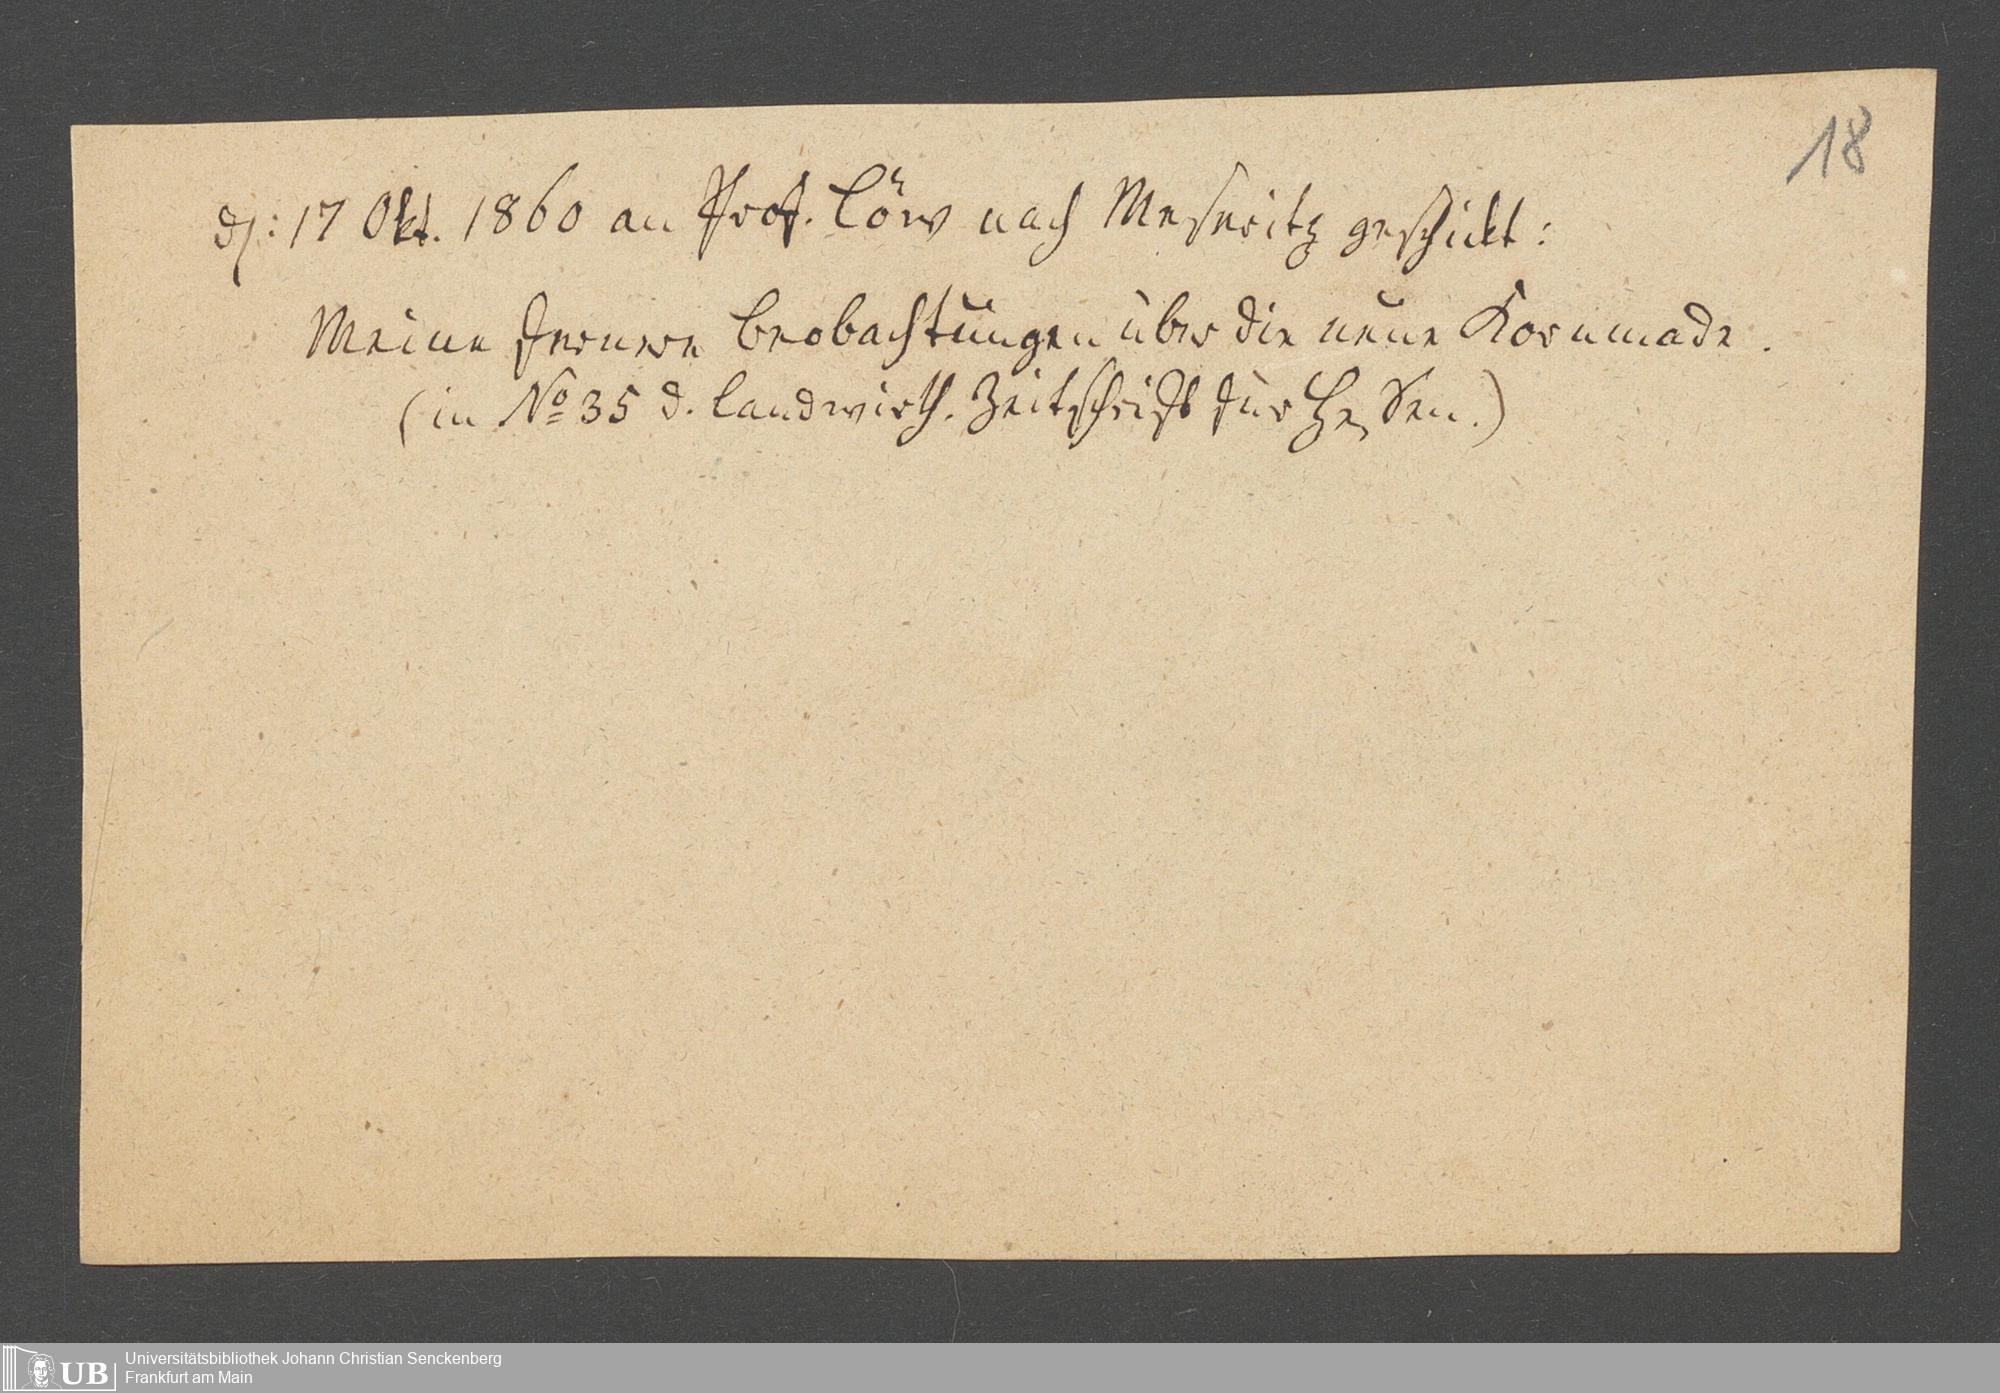 18
d: 17 Okt. 1860 an Prof. Löw nach Meseritz geschickt:
Meine fernere Beobachtungen über die neue Kornmade.
(in No 35 d. landwirth. Zeitschrift für Hessen.)
Universitätsbibliothek Johann Christian Senckenberg
Frankfurt am Main
UB